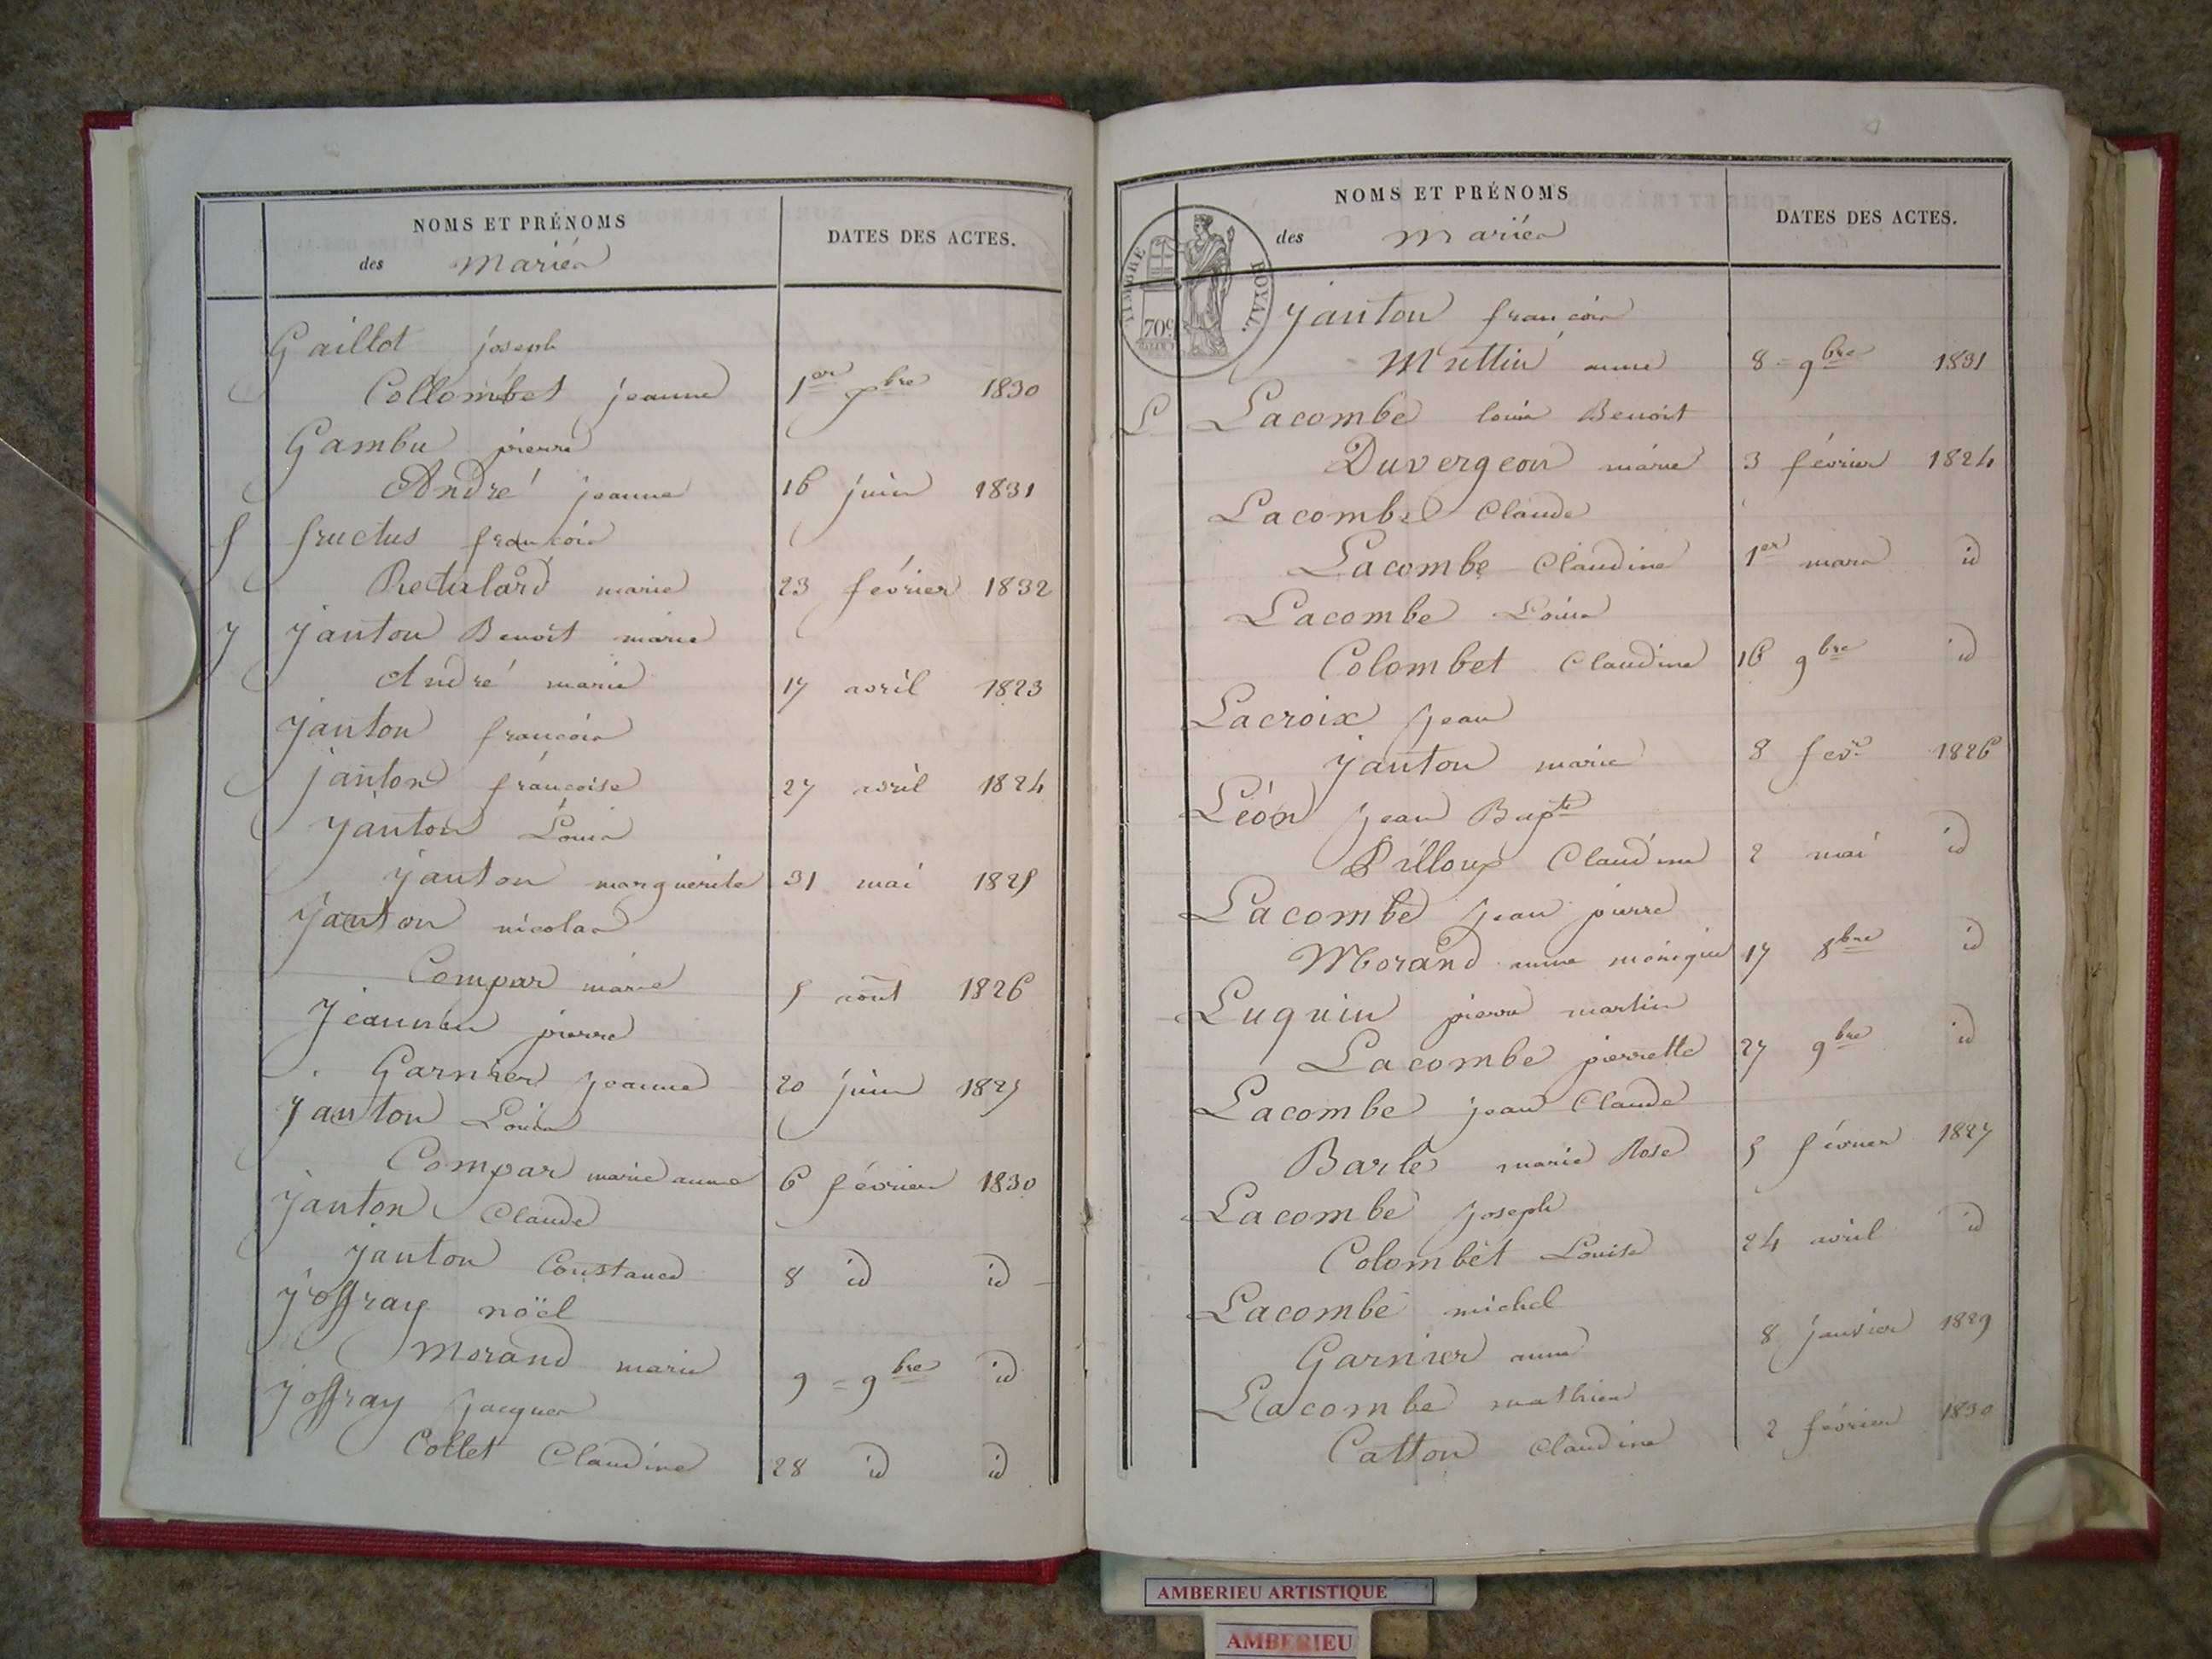 NOMS ET PRÉNOMS
des Mariés
DATES DES ACTES.
Gaillot joseph
Collombet jeanne 1er 7bre 1830
Gambu pierre
André jeanne 16 juin 1831
f fructus francois
Retulard marie 23 février 1832
J janton Benoit marie
André marie 17 avril 1823
janton francois
janton francoise 27 avril 1824
janton Louis
janton marguerite 31 mai 1825
janton nicolas
Compar marie 5 aout 1826
jeannin pierre
Garnier jeanne 20 juin
janton Louis
Compar marie anne 6 février 1830
janton Claude
janton Constance 8 id id
joffray noël
Morand marie 9 = 9bre id
joffray jacques
Collet Claudine 28 id id
NOMS ET PRÉNOMS
des Mariés
DATES DES ACTES.
TIMBRE ROYAL.
70c
janton francois
anne 8 = 9bre 1831
L Lacombe louis Benoit
Duvergeon marie 3 février 1824
Lacombe Claude
Lacombe Claudine 1er mars id
Lacombe Louis
Colombet Claudine 16 9bre id
Lacroix jean
janton marie 8 fevr 1826
Léon jean Bapte
Pilloux Claudine 2 mai id
Lacombe jean pierre
Morand anne monique 17 8bre id
Luquin pierre martin
Lacombe pierrette 27 9bre id
Lacombe jean Claude
Barle marie Rose 5 février 1827
Lacombe joseph
Colombet Louise 24 avril id
Lacombe michel
Garnier anne 8 janvier 1829
Lacombe mathieu
Catton Claudine 2 février 1830
AMBERIEU ARTISTIQUE
AMBERIEU